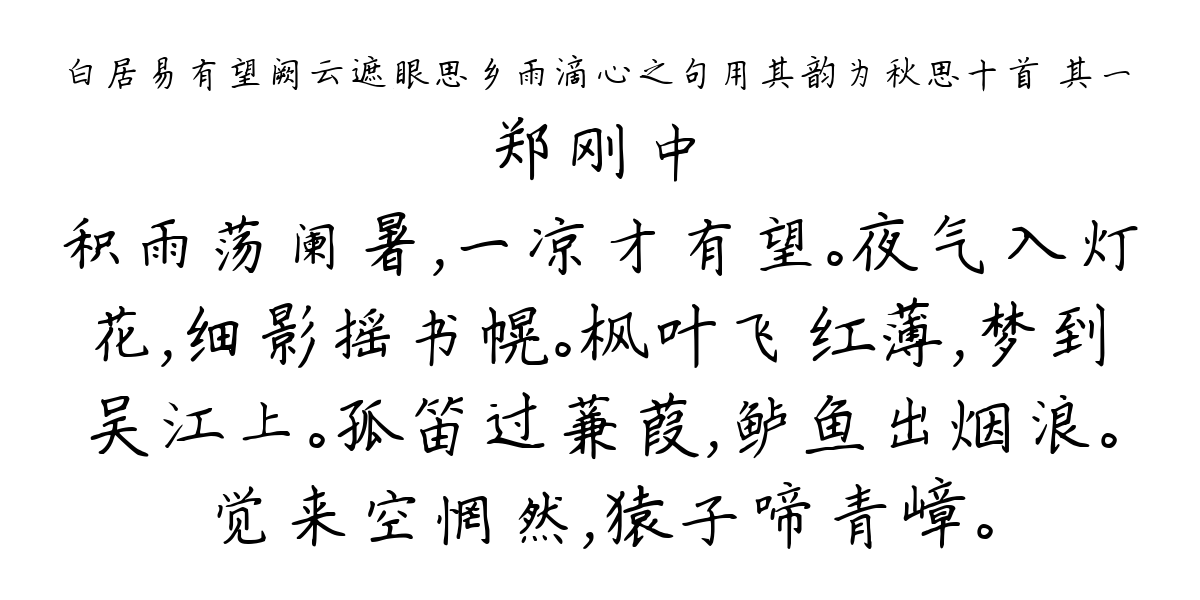 白居易有望阙云遮眼思乡雨滴心之句用其韵为秋思十首 其一
郑刚中
积雨荡阑暑,一凉才有望。夜气入灯
花,细影摇书幌。枫叶飞红薄,梦到
吴江上。孤笛过蒹葭,鲈鱼出烟浪。
觉来空惘然,猿子啼青嶂。